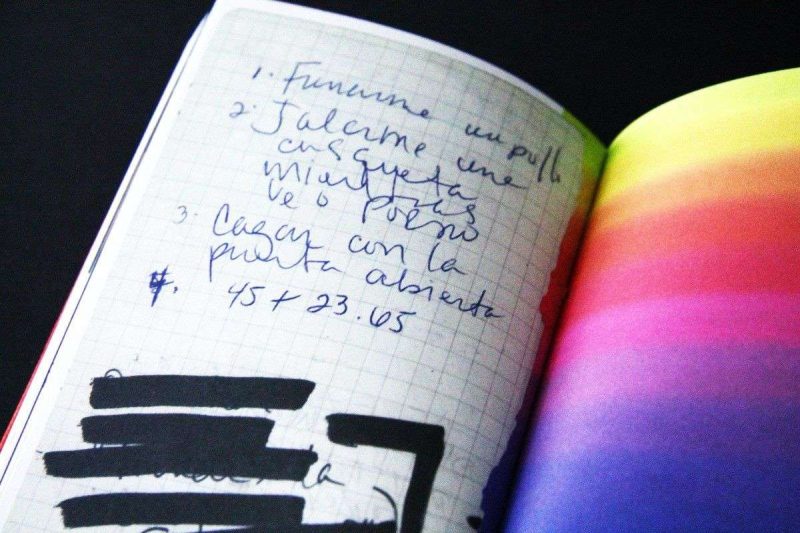 1. Fumarme un puffi
2. Jalarme una
casqueta
mientras
veo porno
3. Cagar con la
puerta abierta
4. 45 + 23.65
la